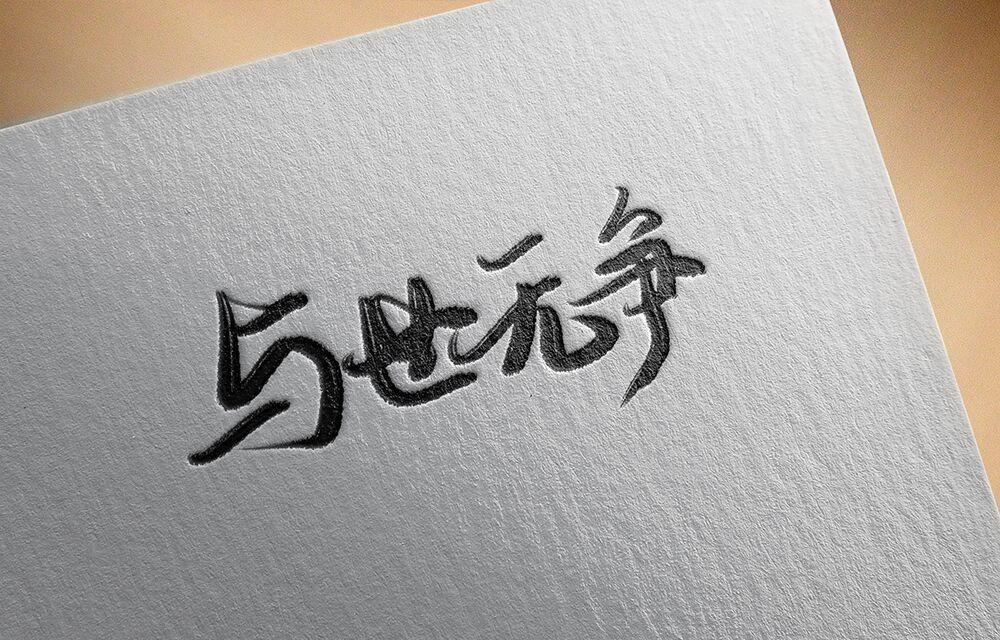 与世无争